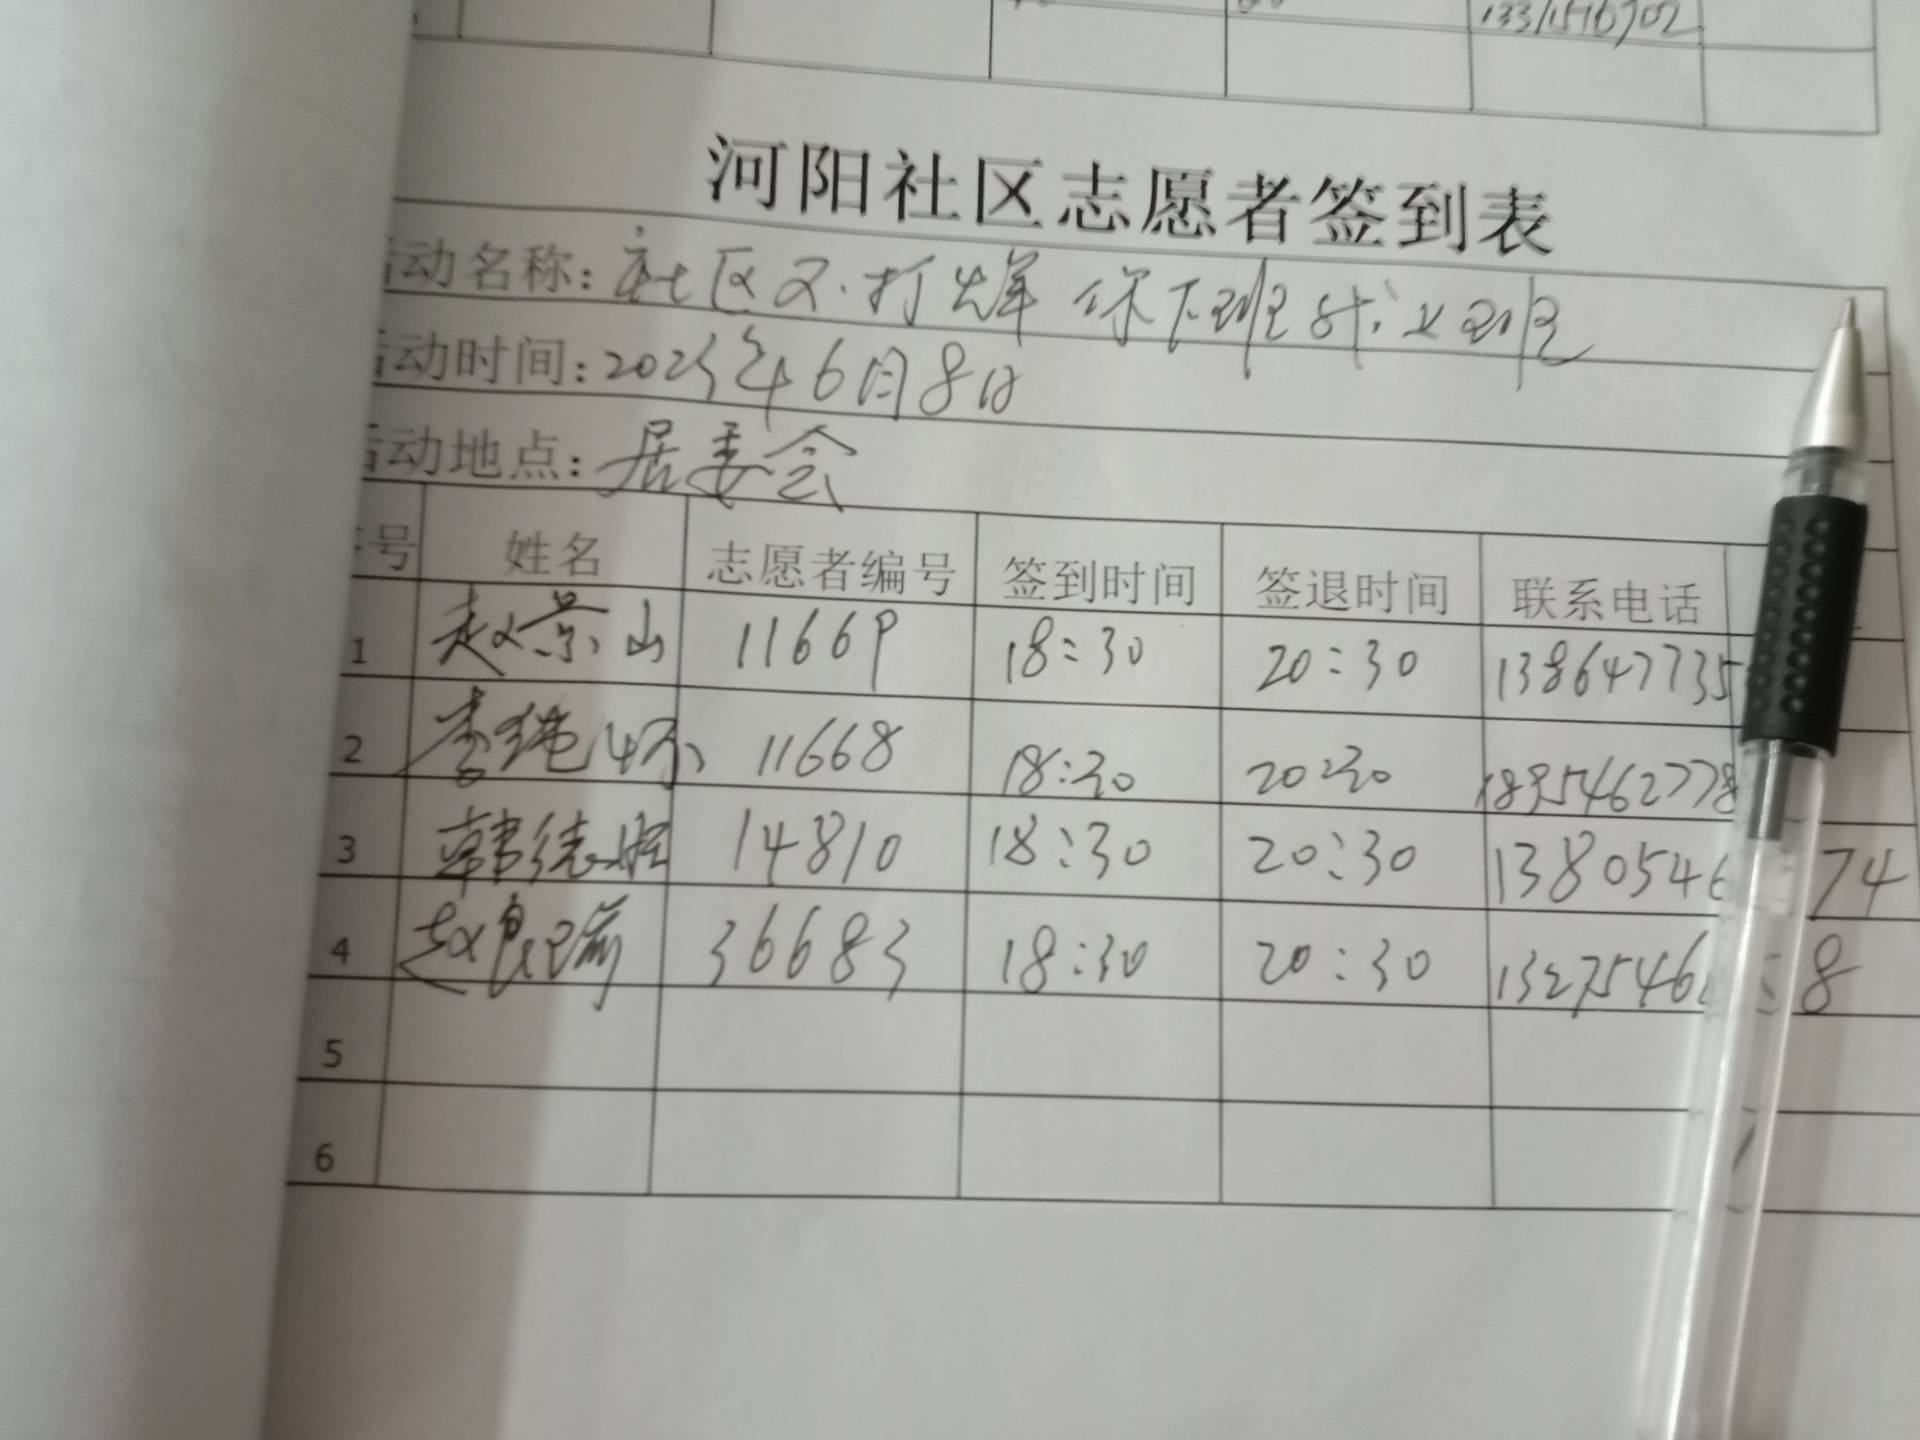 河阳社区志愿者签到表
活动名称: 社区不打烊 你下班我上班
活动时间: 2023年6月8日
活动地点: 居委会
序号 姓名 志愿者编号 签到时间 签退时间 联系电话
1 赵景山 11669 18:30 20:30 138647735
2 李纯 11668 18:30 20:30 1895462778
3 韩德胜 14810 18:30 20:30 1380546 74
4 赵良瑞 36683 18:30 20:30 13275461 58
5
6